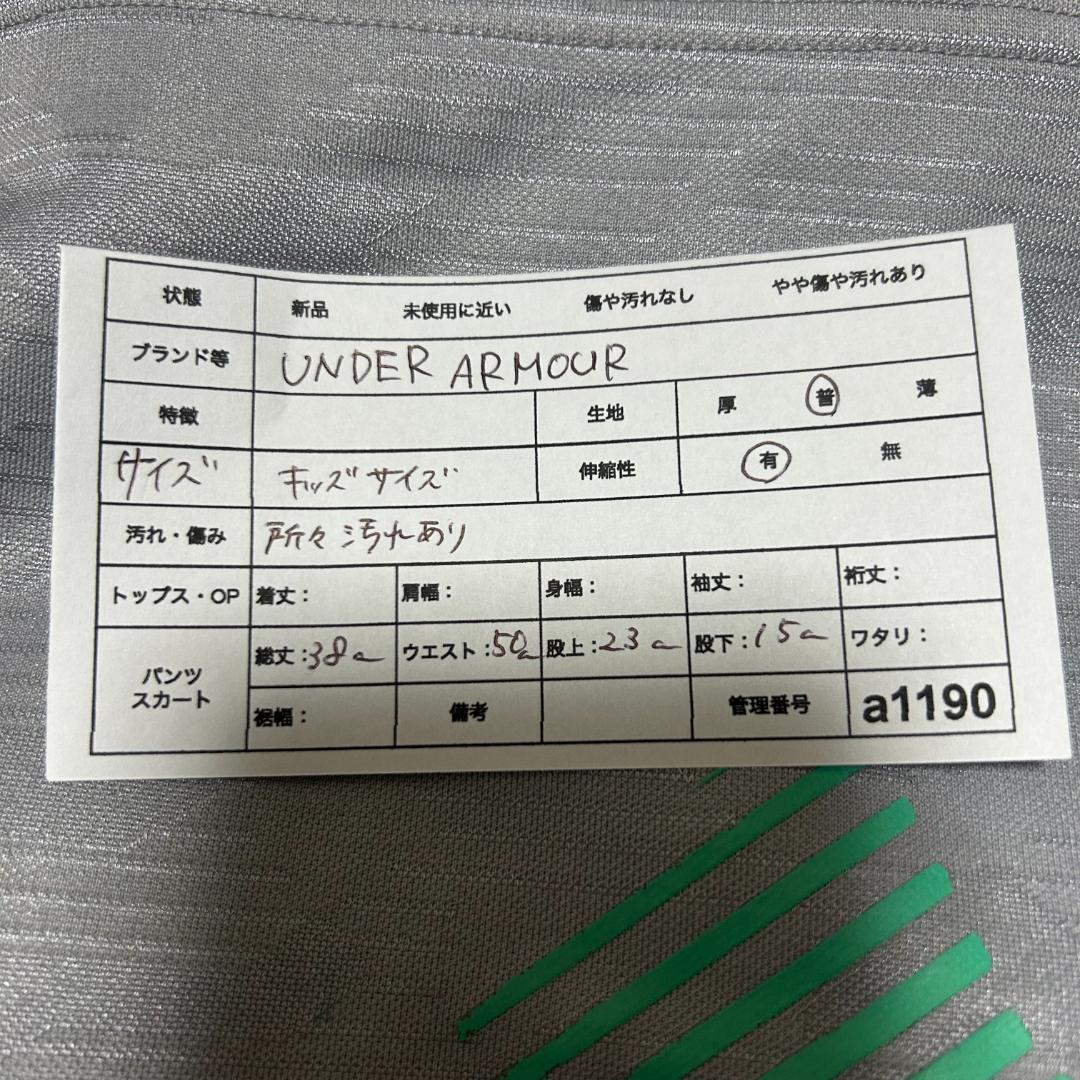 状態 新品 未使用に近い 傷や汚れなし やや傷や汚れあり
ブランド等 UNDER ARMOUR
特徴 生地 厚 普 薄
サイズ キッズサイズ 伸縮性 有 無
汚れ・傷み 所々汚れあり
トップス・OP 着丈： 肩幅： 身幅： 袖丈： 裄丈：
パンツ
スカート
総丈：38㎝ ウエスト：50㎝ 股上：23㎝ 股下：15㎝ ワタリ：
裾幅： 備考 管理番号 a1190